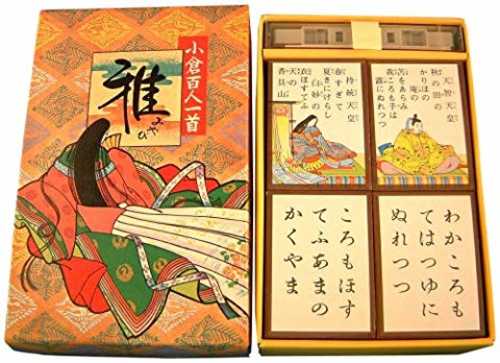 小倉百人一首
雅
みやび
持統天皇
春すぎて
夏きにけらし
白妙の
衣ほすてふ
天の
香具山
天智天皇
秋の田の
かりほの
庵の
苫をあらみ
我ころも手は
露にぬれつつ
ころもほす
てふあまの
かくやま
わかころも
てはつゆに
ぬれつつ